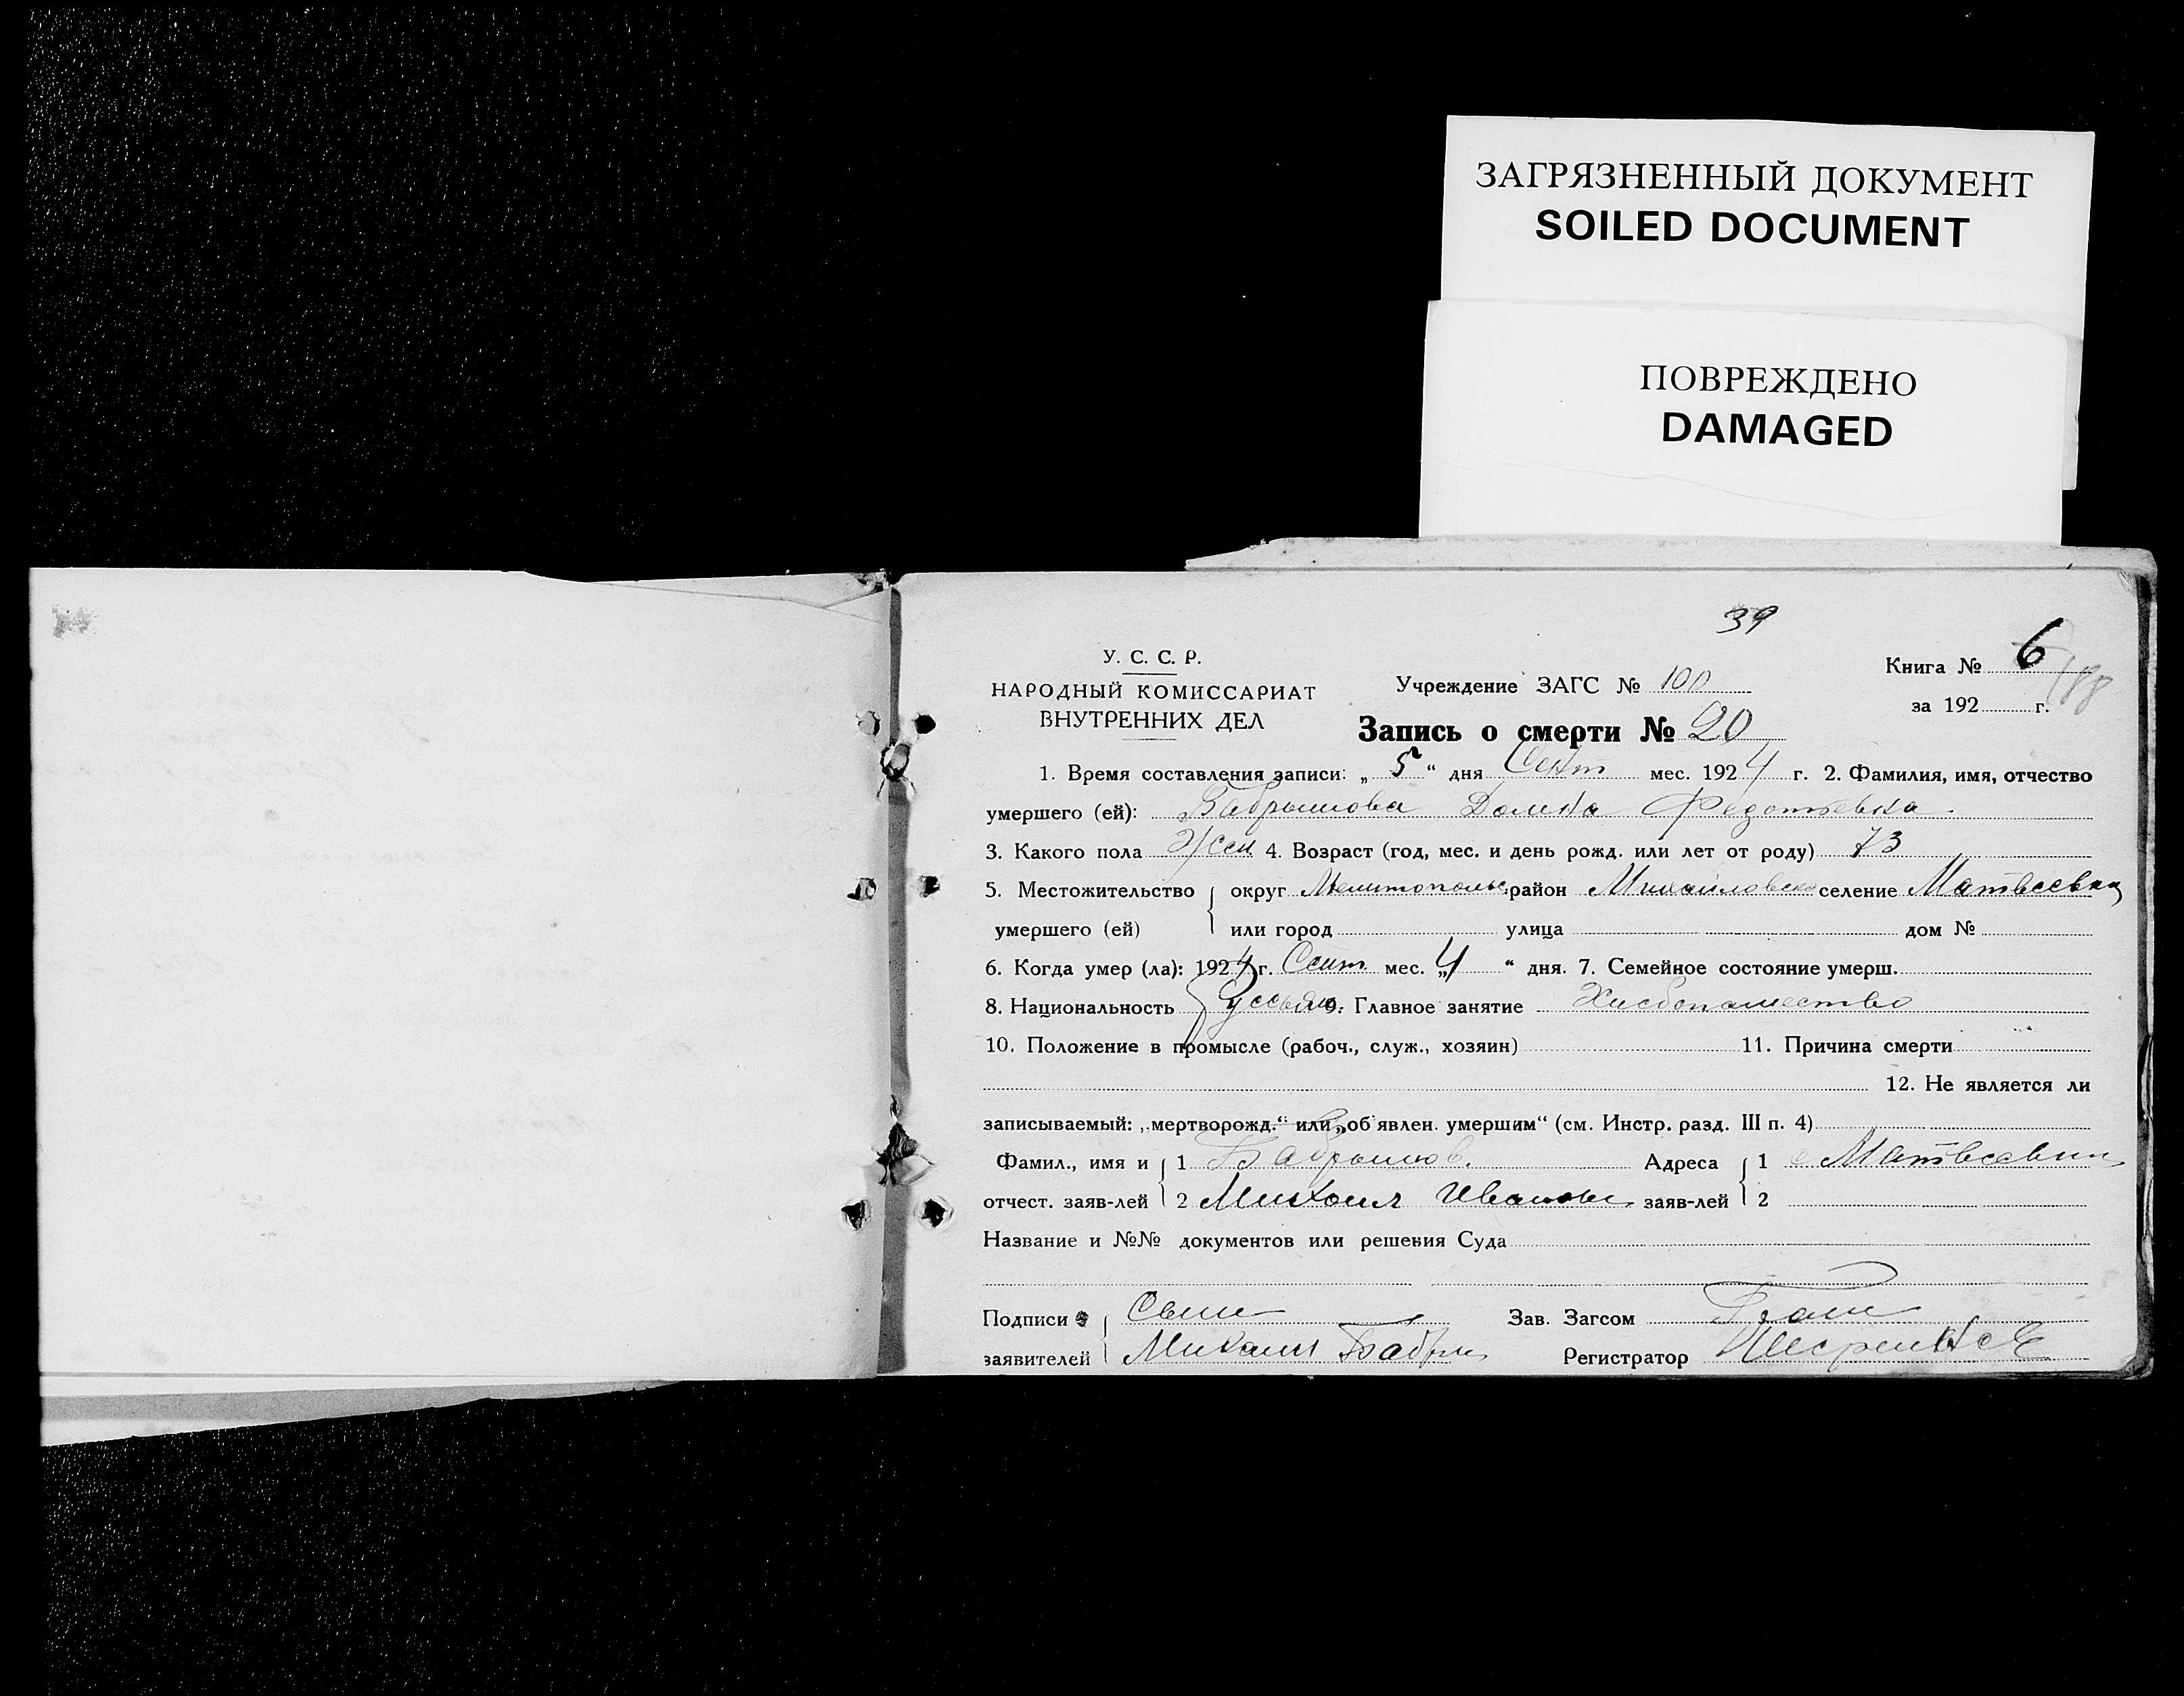 ЗАГРЯЗНЕННЫЙ ДОКУМЕНТ
SOILED DOCUMENT
ПОВРЕЖДЕНО
DAMAGED
39
У. С. С. Р.
НАРОДНЫЙ КОМИССАРИАТ
ВНУТРЕННИХ ДЕЛ
Учреждение ЗАГС № 100
Книга № 6
за 192 г.
Запись о смерти № 20
1. Время составления записи: „ 5 “ дня Сент мес. 1924 г. 2. Фамилия, имя, отчество
умершего (ей): Домна Федотьевна
3. Какого пола Жен 4. Возраст (год, мес. и день рожд. или лет от роду) 73
5. Местожительство округ Мелитопольс район Михайловски селение Матвеевка
умершего (ей) или город улица дом №
6. Когда умер (ла): 1924 г. Сент. мес. „4 “ дня. 7. Семейное состояние умерш.
8. Национальность 9. Главное занятие Хлебопашество
10. Положение в промысле (рабоч., служ., хозяин) 11. Причина смерти
12. Не является ли
записываемый: „мертворожд.“ или „об'явлен. умершим“ (см. Инстр. разд. III п. 4)
Фамил., имя и 1 Адреса 1 с Матвеевки
отчест. заяв-лей 2 Михаил Иванов заяв-лей 2
Название и №№ документов или решения Суда
Подписи Зав. Загсом
заявителей Михаил Регистратор